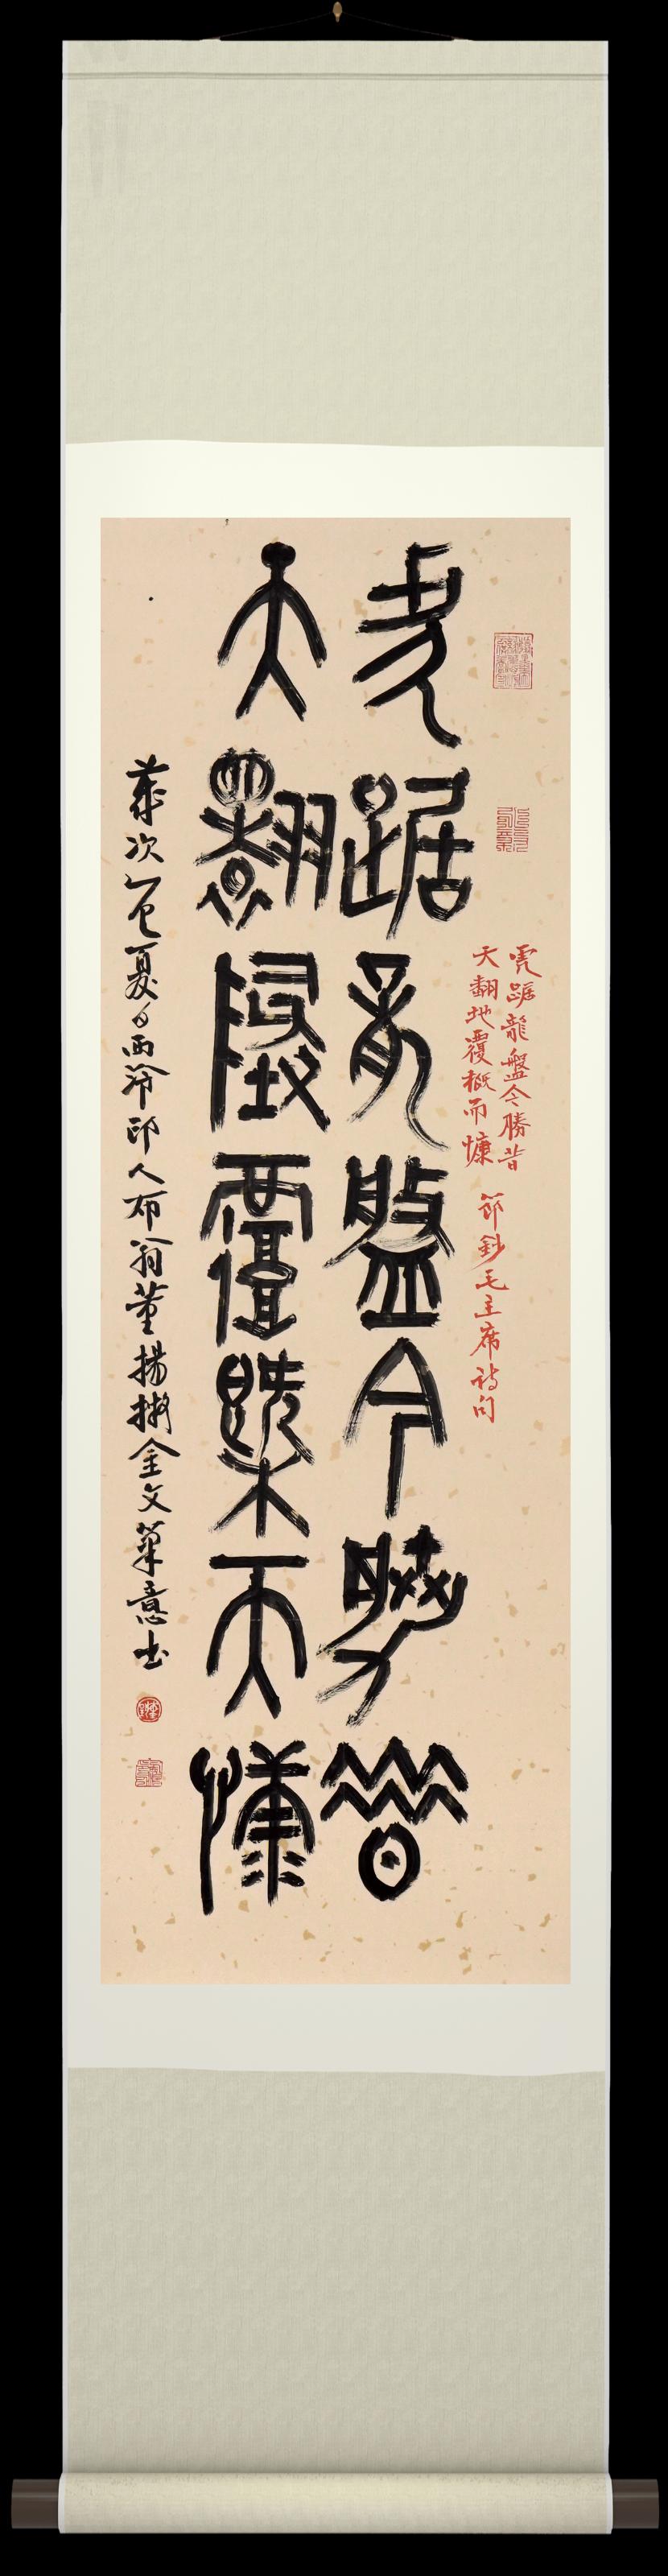 虎踞龍盤今勝昔
天翻地覆概而慷 節鈔毛主席詩句
虎踞龍盤今勝昔
天翻地覆槩而慷
歲次乙巳夏日西泠印人布翁董揚擬金文筆意书